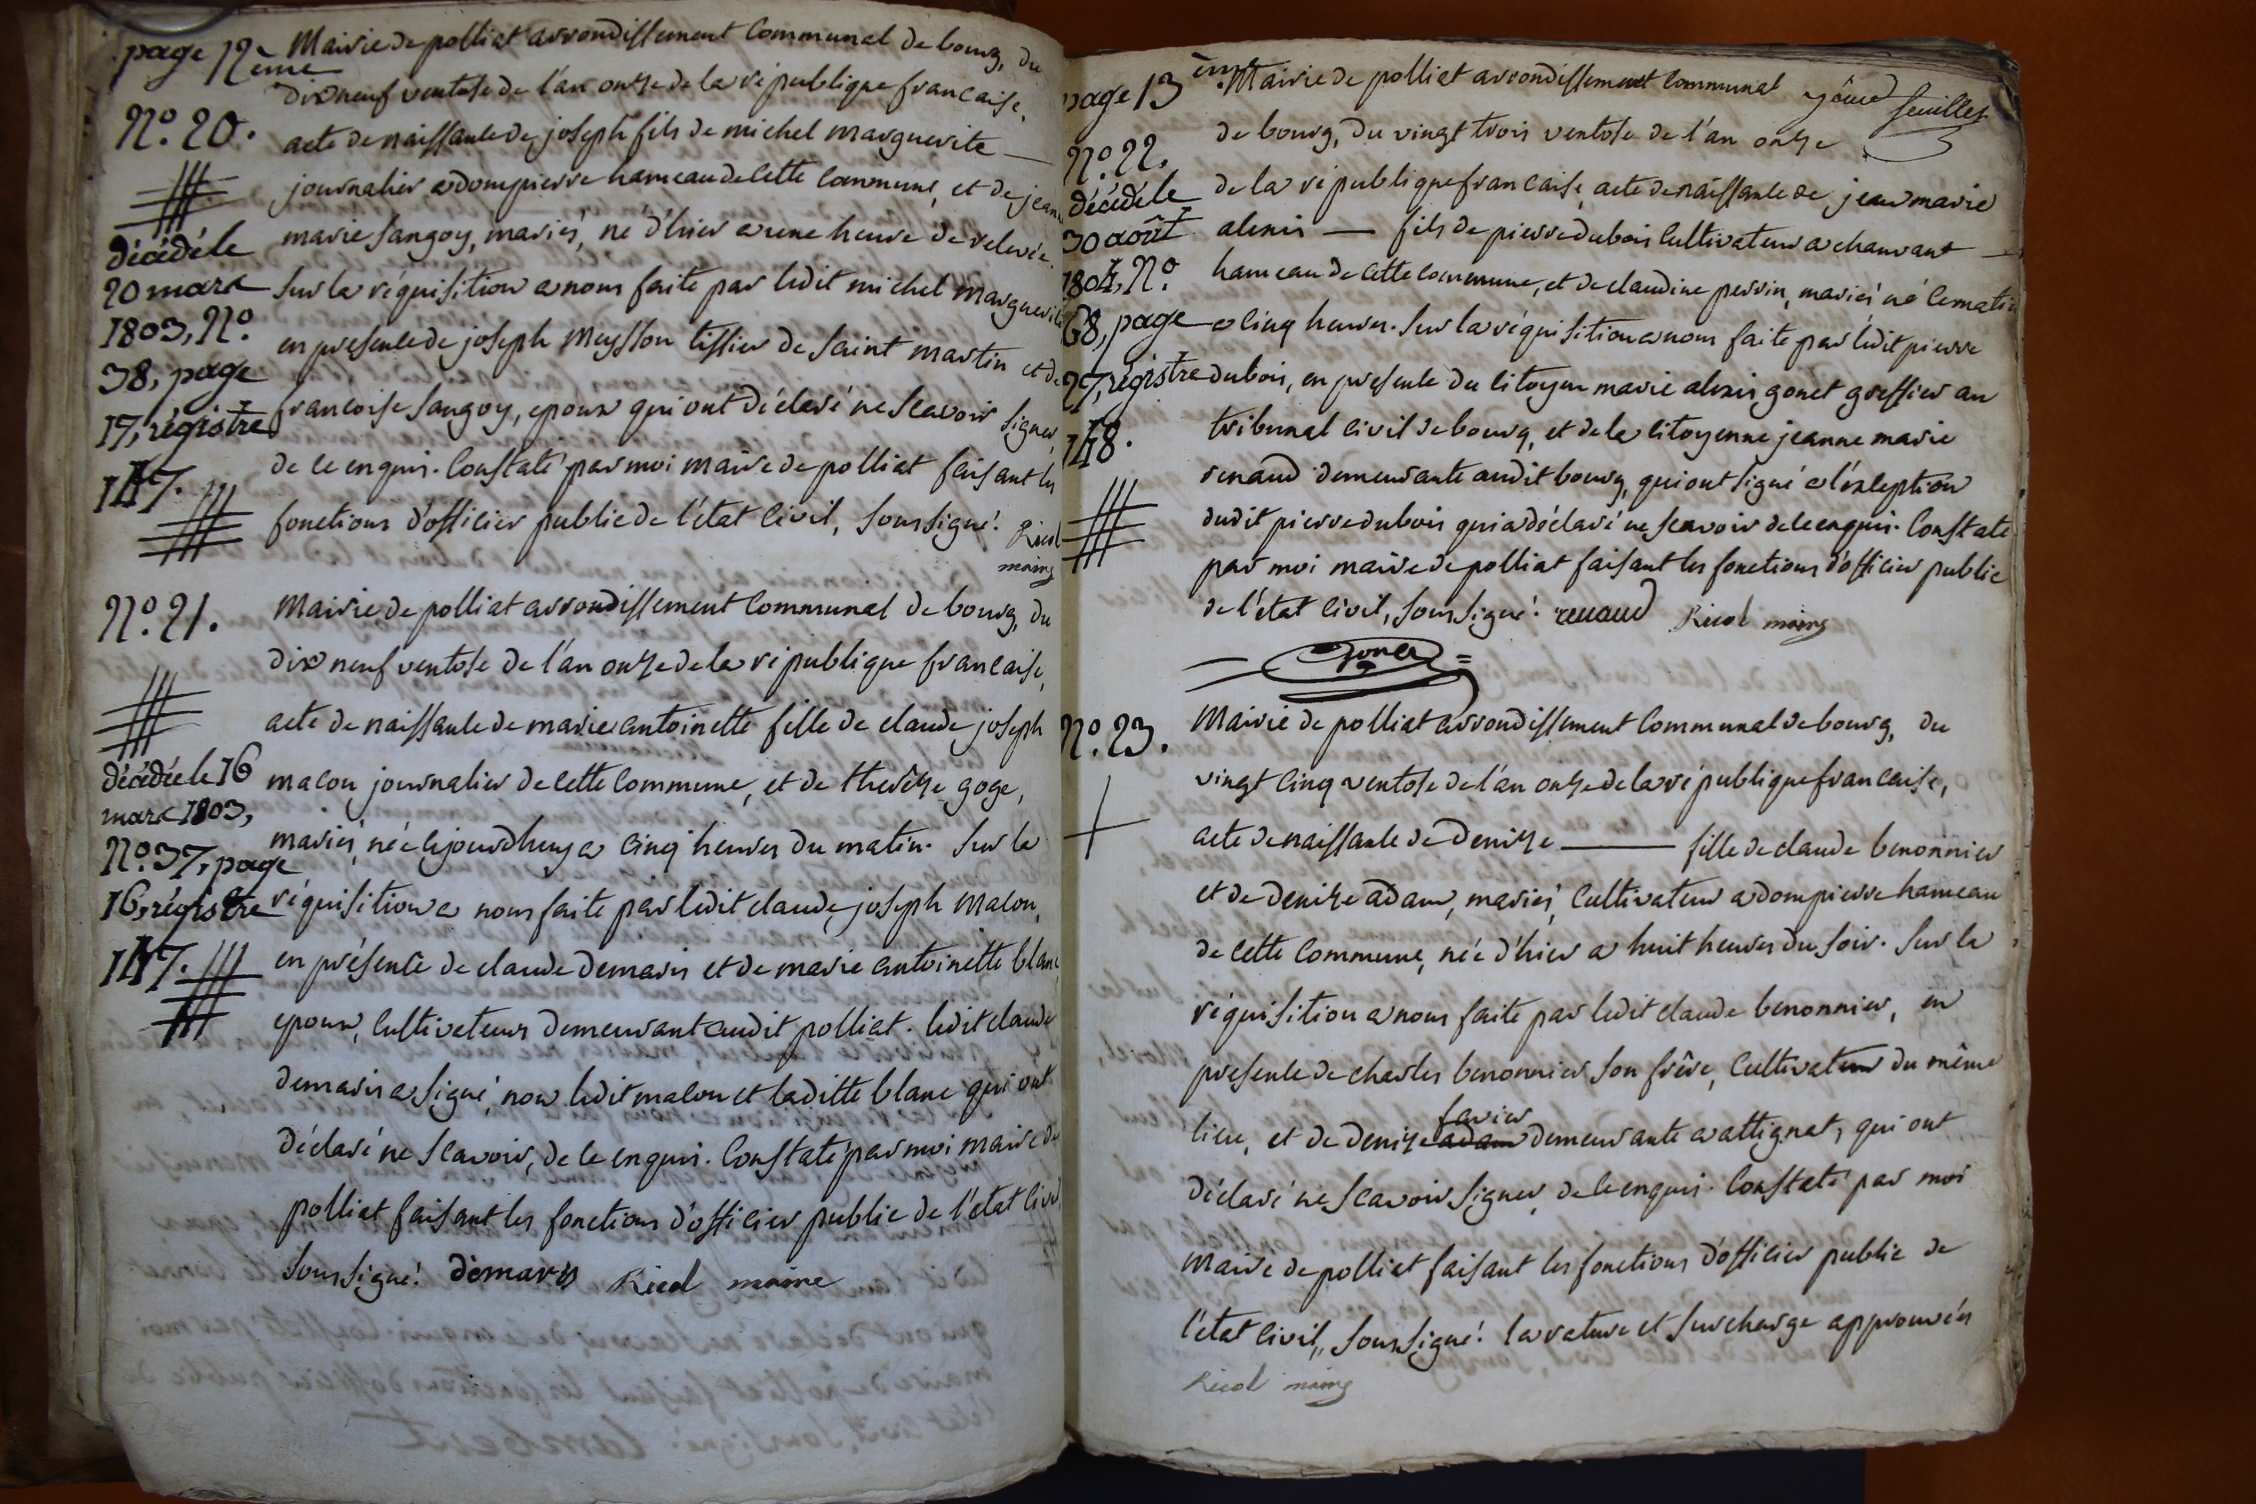 page 12ème
Mairie de polliat arrondissement Communal de bourg, du
dix neuf ventose de l'an onze de la république francaise,
N.º 20.
acte de naissance de joseph fils de michel marguerite —
journalier a dompierre hameau de cette commune, et de jeanne
marie sangoy, mariés, né d'hier a une heure de relevée.
Sur la réquisition a nous faite par ledit michel marguerite
en presence de joseph Meysson tissier de saint martin et de
francoise sangoy, epoux qui ont déclaré ne scavoir signer,
de ce enquis. Constaté par moi maire de polliat faisant les
fonctions d'officier public de l'état Civil, soussigné. Ricol
maire
décédé le
20 mars
1803, N.º
38, page
17, régistre
147.
N.º 21.
Mairie de polliat arrondissement Communal de bourg, du
dix neuf ventose de l'an onze de la république francaise,
acte de naissance de marie antoinette fille de claude joseph
macon journalier de cette Commune, et de therèze goge,
mariés, née cejourdhuy a cinq heures du matin. Sur la
réquisition a nous faite par ledit claude joseph Macon,
en présence de claude demaris et de marie antoinette blanc,
epoux, Cultivateurs demeurant audit polliat. ledit claude
demaris a signé, non ledit macon et laditte blanc qui ont
déclaré ne scavoir, de ce enquis. Constaté par moi maire de
polliat faisant les fonctions d'officier public de l'état civil
soussigné. demaris Ricol maire
décédée le 16
mars 1803,
N.º 37, page
16, régistre
147.
page 13 ème
feuillet
Mairie de polliat arrondissement Communal
de bourg, du vingt trois ventose de l'an onze
de la république francaise, acte de naissance de jean marie
alexis — fils de pierre dubois Cultivateur a chanvant —
hameau de cette commune, et de claudine perrin, mariés né ce matin
a cinq heures. Sur la réquisition a nous faite par ledit pierre
dubois, en presence du citoyen marie alexis gonet greffier au
tribunal civil de bourg, et de la citoyenne jeanne marie
renaud demeurante audit bourg, qui ont signé a l'exception
dudit pierre dubois qui a déclaré ne scavoir de ce enquis. Constaté
par moi maire de polliat faisant les fonctions d'officier public
de l'état Civil, soussigné. renaud Ricol maire
gonet
N.º 22.
décédé le
30 août
1804, N.º
68, page
27, régistre
148.
N.º 23.
Mairie de polliat arrondissement Communal de bourg, du
vingt cinq ventose de l'an onze de la république francaise,
acte de naissance de Denize — fille de claude benonnier
et de denize adam, mariés, Cultivateur a dompierre hameau
de cette Commune, née d'hier a huit heures du soir. Sur la
réquisition a nous faite par ledit claude benonnier, en
presence de charles benonnier son frêre, Cultivateur du même
favier
lieu, et de denize adam demeurante a attignat, qui ont
déclaré ne scavoir signer, de ce enquis. Constaté par moi
Maire de polliat faisant les fonctions d'officier public de
l'état civil, soussigné. la rature et surcharge approuvées
Ricol maire